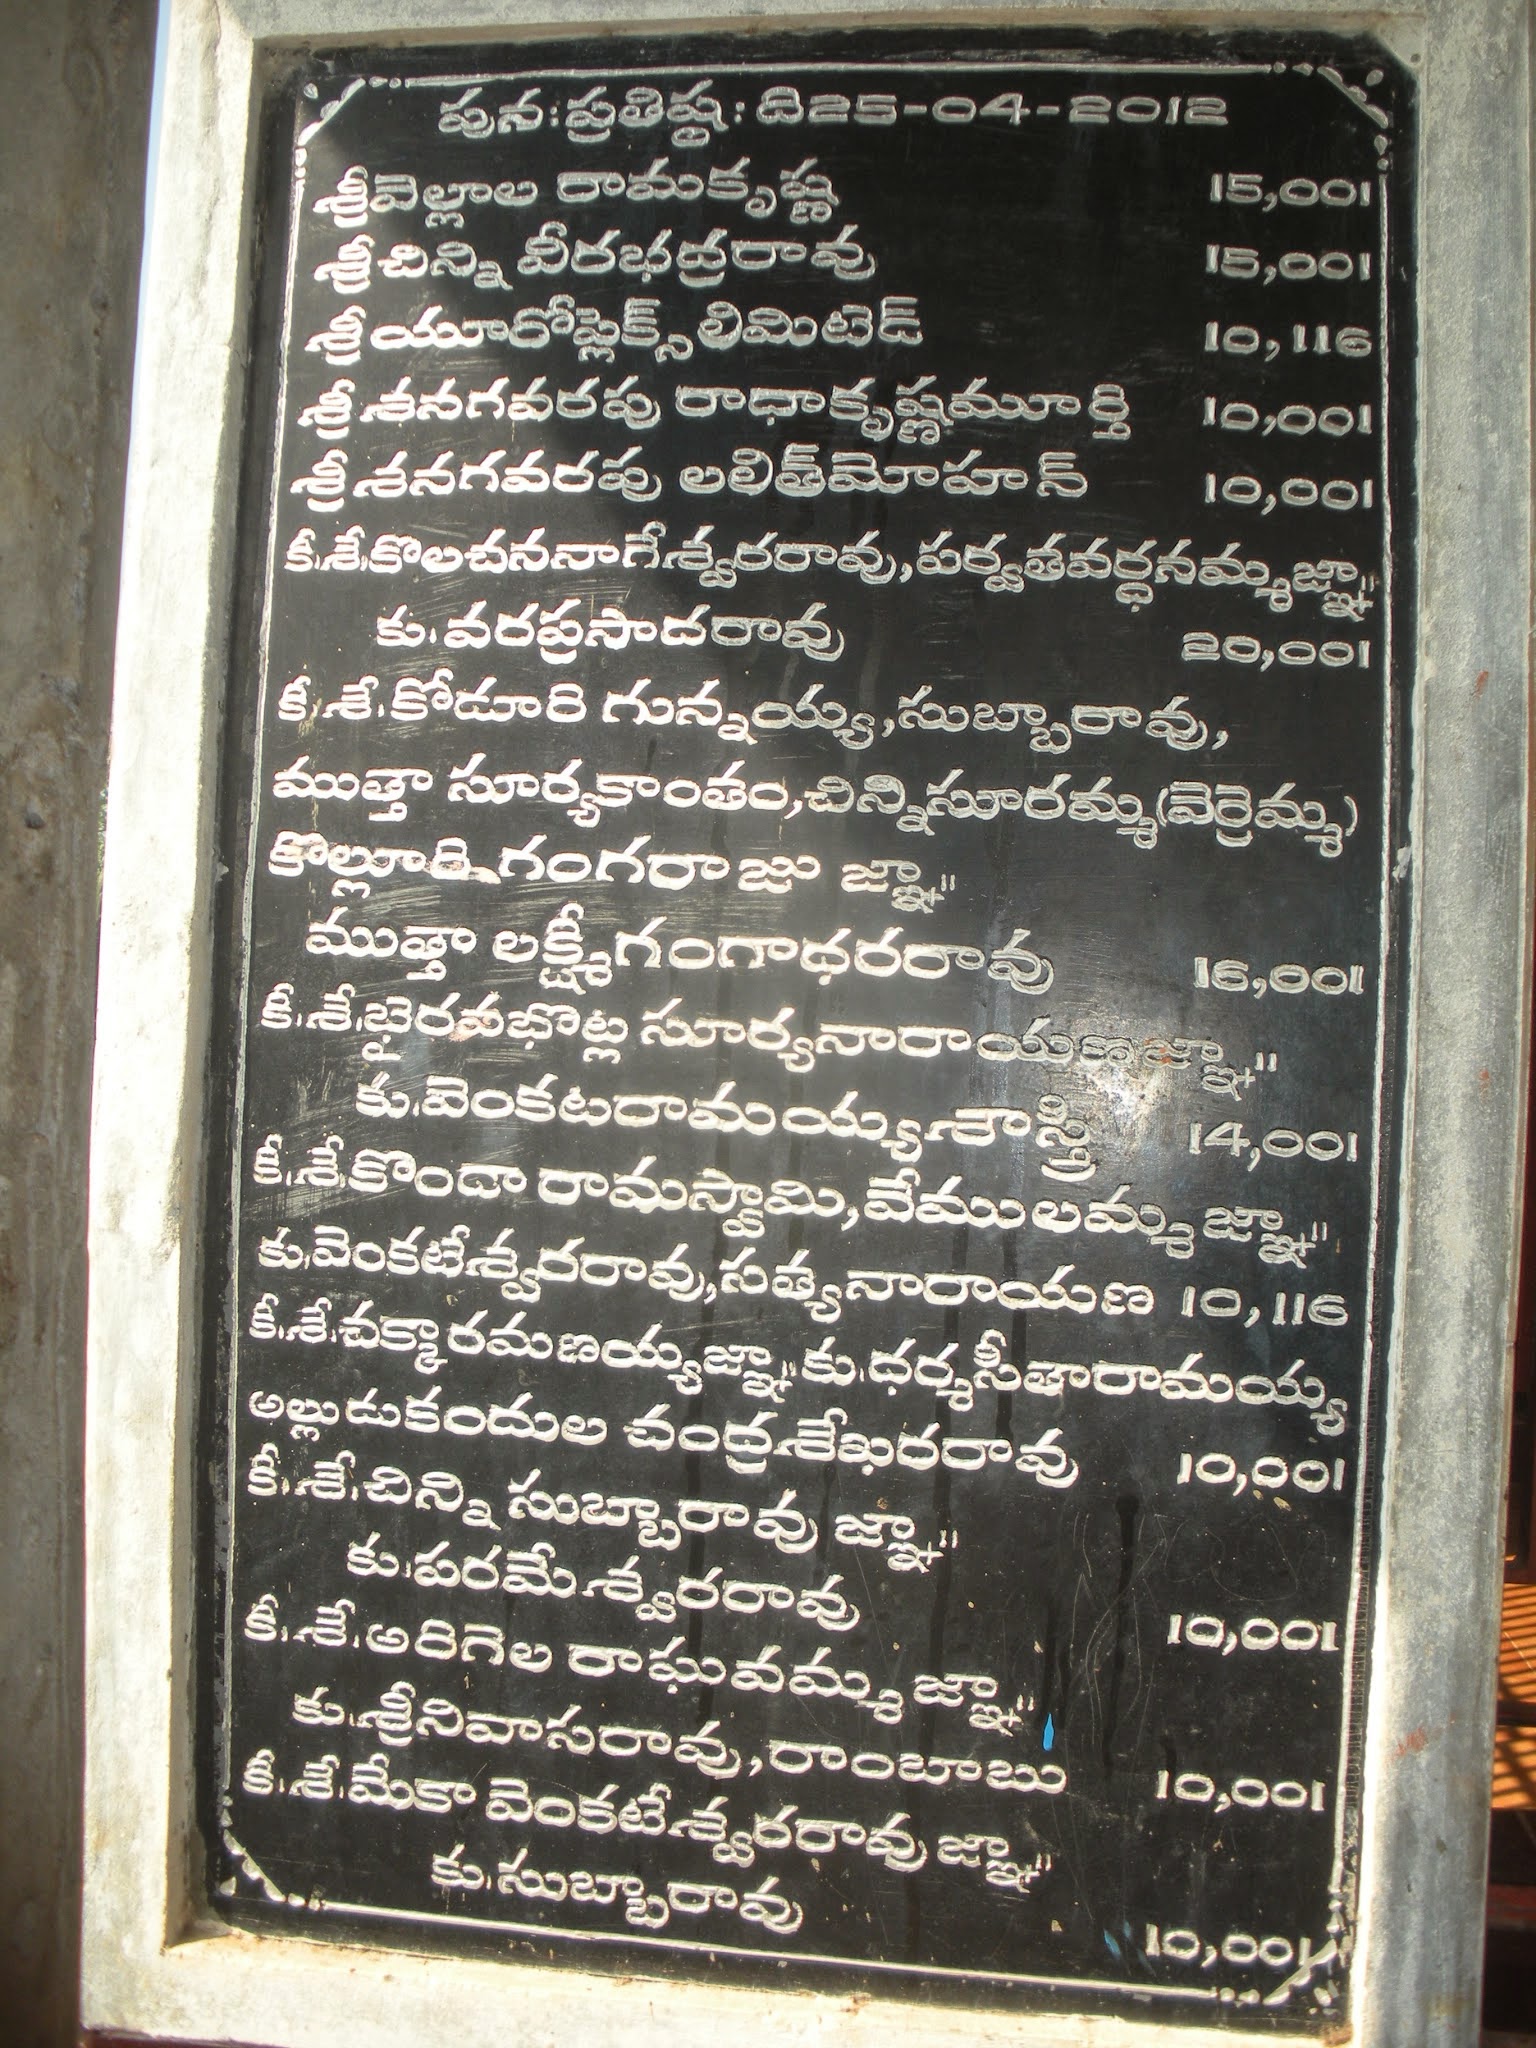 పున:ప్రతిష్ఠ: ది25-04-2012
శ్రీవెల్లాల రామకృష్ణ 15,001
శ్రీచిన్ని వీరభద్రరావు 15,001
శ్రీయూరోప్లెక్స్‌లిమిటెడ్ 10,116
శ్రీశనగవరపు రాధాకృష్ణమూర్తి 10,001
శ్రీశనగవరపు లలిత్‌మోహన్ 10,001
కీ.శే.కొలచననాగేశ్వరరావు,పర్వతవర్ధనమ్మజ్ఞా"
కు.వరప్రసాదరావు 20,001
కీ.శే.కోడూరి గున్నయ్య,సుబ్బారావు,
ముత్తా సూర్యకాంతం,చిన్నిసూరమ్మ(వెర్రెమ్మ)
కొల్లూడి గంగరాజు జ్ఞా"
ముత్తా లక్ష్మీగంగాధరరావు 16,001
కీ.శే.భైరవభొట్ల సూర్యనారాయణజ్ఞా"
కు.వెంకటరామయ్యశాస్త్రి 14,001
కీ.శే.కొండా రామస్వామి,వేములమ్మ జ్ఞా"
కు.వెంకటేశ్వరరావు,సత్యనారాయణ 10,116
కీ.శే.చక్కారమణయ్యజ్ఞా"కు.ధర్మసీతారామయ్య
అల్లుడుకందుల చంద్రశేఖరరావు 10,001
కీ.శే.చిన్ని సుబ్బారావు జ్ఞా"
కు.పరమేశ్వరరావు 10,001
కీ.శే.అరిగెల రాఘవమ్మ జ్ఞా"
కు.శ్రీనివాసరావు,రాంబాబు 10,001
కీ.శే.మేకా వెంకటేశ్వరరావు జ్ఞా"
కు.సుబ్బారావు 10,001